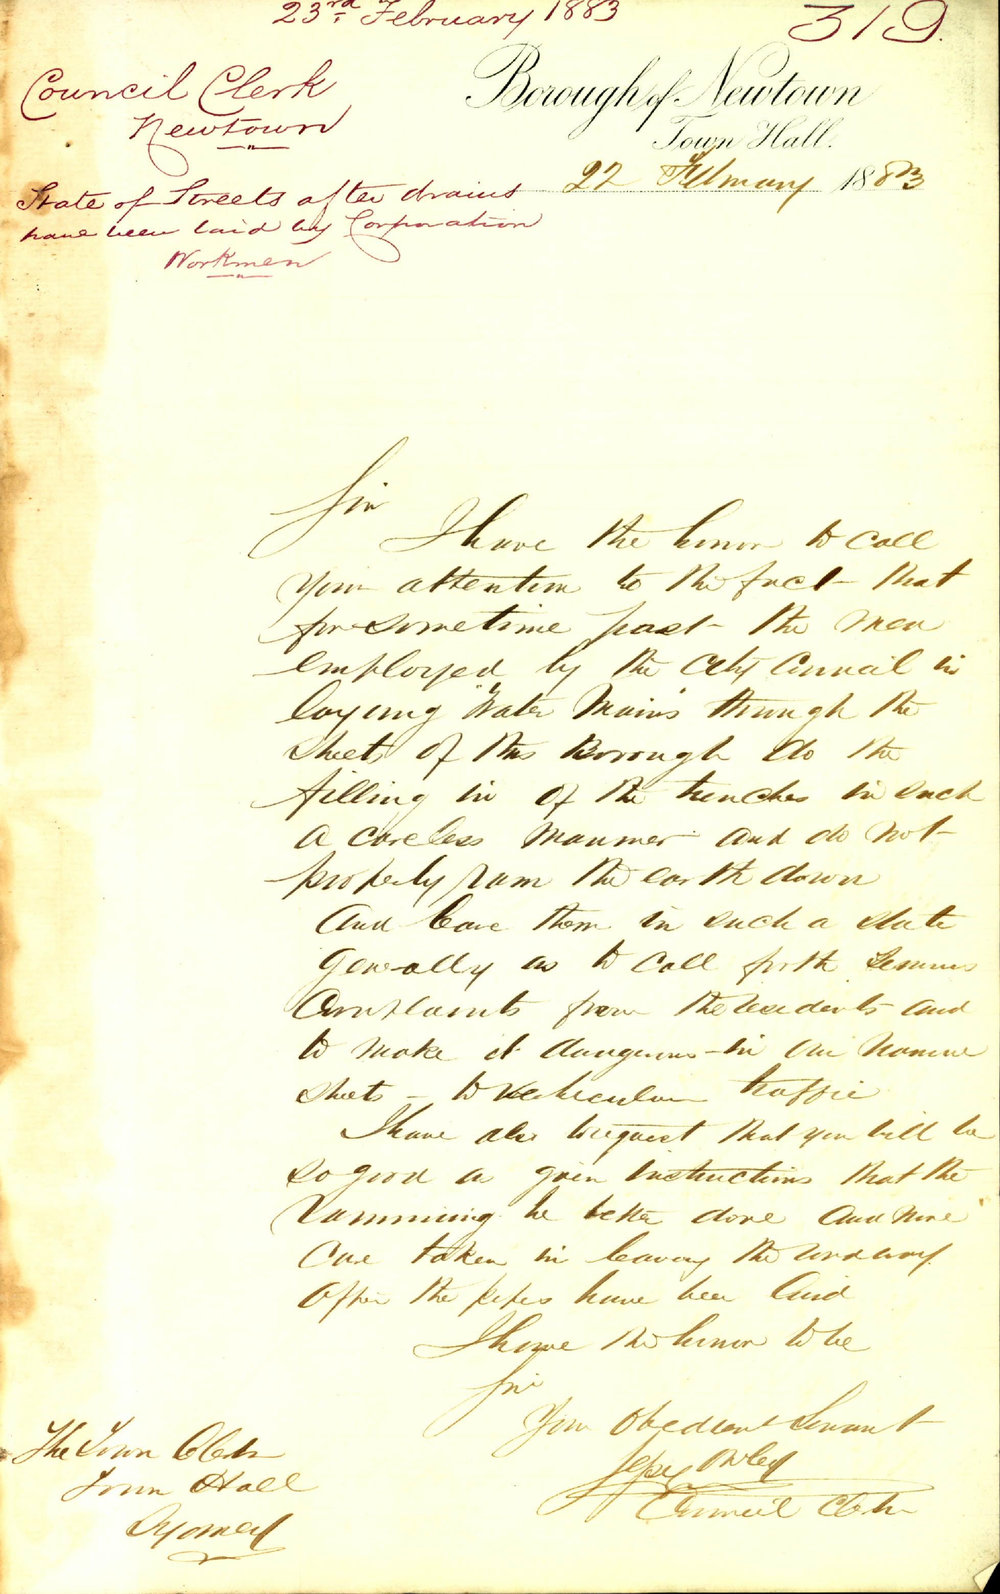 23rd February 1883
319.
Council Clerk
Newtown
State of Streets after drains
have been laid by Corporation
Workmen
Borough of Newtown
Town Hall.
22 February 1883
Sir
I have the honor to call
your attention to the fact that
for sometime past the men
employed by the City Council in
laying "Water Mains" through the
streets of this Borough do the
filling in of the trenches in such
a careless manner and do not
properly ram the earth down
and leave them in such a state
generally as to call forth serious
complaints from the residents and
to make it dangerous in our narrow
streets to vehicular traffic
I have also to request that you will be
so good as given instructions that the
ramming be better done and more
care taken in leaving the roadway
after the pipes have been laid
I have the honor to be
Sir
Your Obedient Servant
Council Clerk
The Town Clerk
Town Hall
Sydney